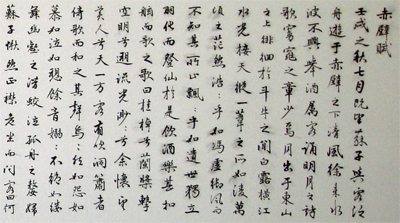 赤壁賦
壬戌之秋七月既望蘇子與客泛
舟遊于赤壁之下清風徐來水
波不興舉酒屬客誦明月之詩
歌窈窕之章少焉月出于東山
之上徘徊於斗牛之間白露橫江
水光接天縱一葦之所如凌萬
頃之茫然浩〻乎如馮虛御風而
不知其所止飄〻乎如遺世獨立
羽化而登仙於是飲酒樂甚扣
舷而歌之歌曰桂棹兮蘭槳擊
空明兮泝流光渺〻兮余懷望
美人兮天一方客有吹洞簫者
倚歌而和之其聲嗚〻然如怨如
慕如泣如訴餘音嫋〻不絕如縷
舞幽壑之潛蛟泣孤舟之嫠婦
蘇子愀然正襟危坐而問客曰何